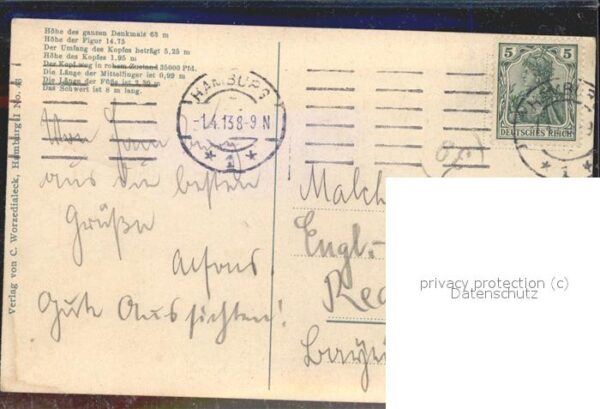 Höhe des ganzen Denkmals 65 m
Höhe der Figur 14.75
Der Umfang des Kopfes beträgt 5,25 m
Höhe des Kopfes 1,95 m
Der Kopf wog in rohem Zustand 35000 Pfd.
Die Länge der Mittelfinger ist 0,99 m
Die Länge der Füße ist 2,20 m
Das Schwert ist 8 m lang.
Verlag von C. Worzedialeck, Hamburg I No. 48
HAMBURG
-1.4.13 8-9 N
* 1 *
5 5
DEUTSCHES REICH
HAMBURG
* 1
aus die besten
Grüße
Alfons
Gute Aussichten!
Malch
Engl.-
Rec
Baye
privacy protection (c)
Datenschutz